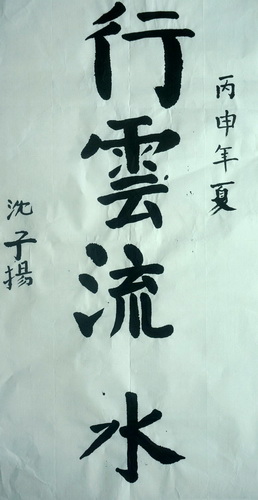 丙申年夏
行雲流水
沈子揚